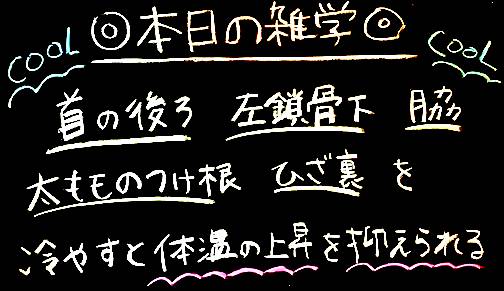 COOL ◎本日の雑学◎ COOL
首の後ろ 左鎖骨下 脇
太もものつけ根 ひざ裏 を
冷やすと体温の上昇を抑えられる